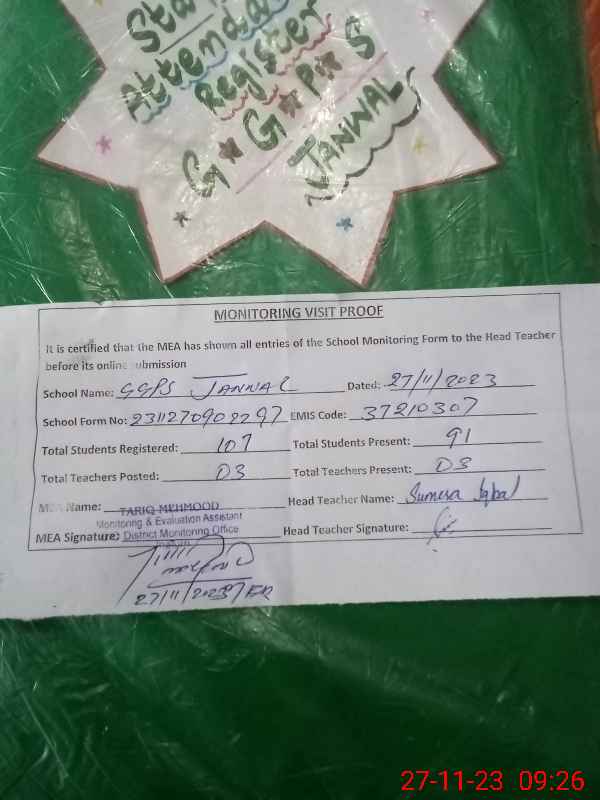 Sta
Attenda
Register
G★G★P★S
JANWAL
MONITORING VISIT PROOF
It is certified that the MEA has shown all entries of the School Monitoring Form to the Head Teacher
before its online submission
School Name: GGPS JANWAL Dated: 27/11/2023
School Form No: 2311270902297 EMIS Code: 37210307
Total Students Registered: 107 Total Students Present: 91
Total Teachers Posted: 03 Total Teachers Present: 03
MEA Name: TARIQ MEHMOOD Head Teacher Name: Sumera Iqbal
Monitoring & Evaluation Assistant
MEA Signature: District Monitoring Office Head Teacher Signature:
27/11/2023
27-11-23 09:26